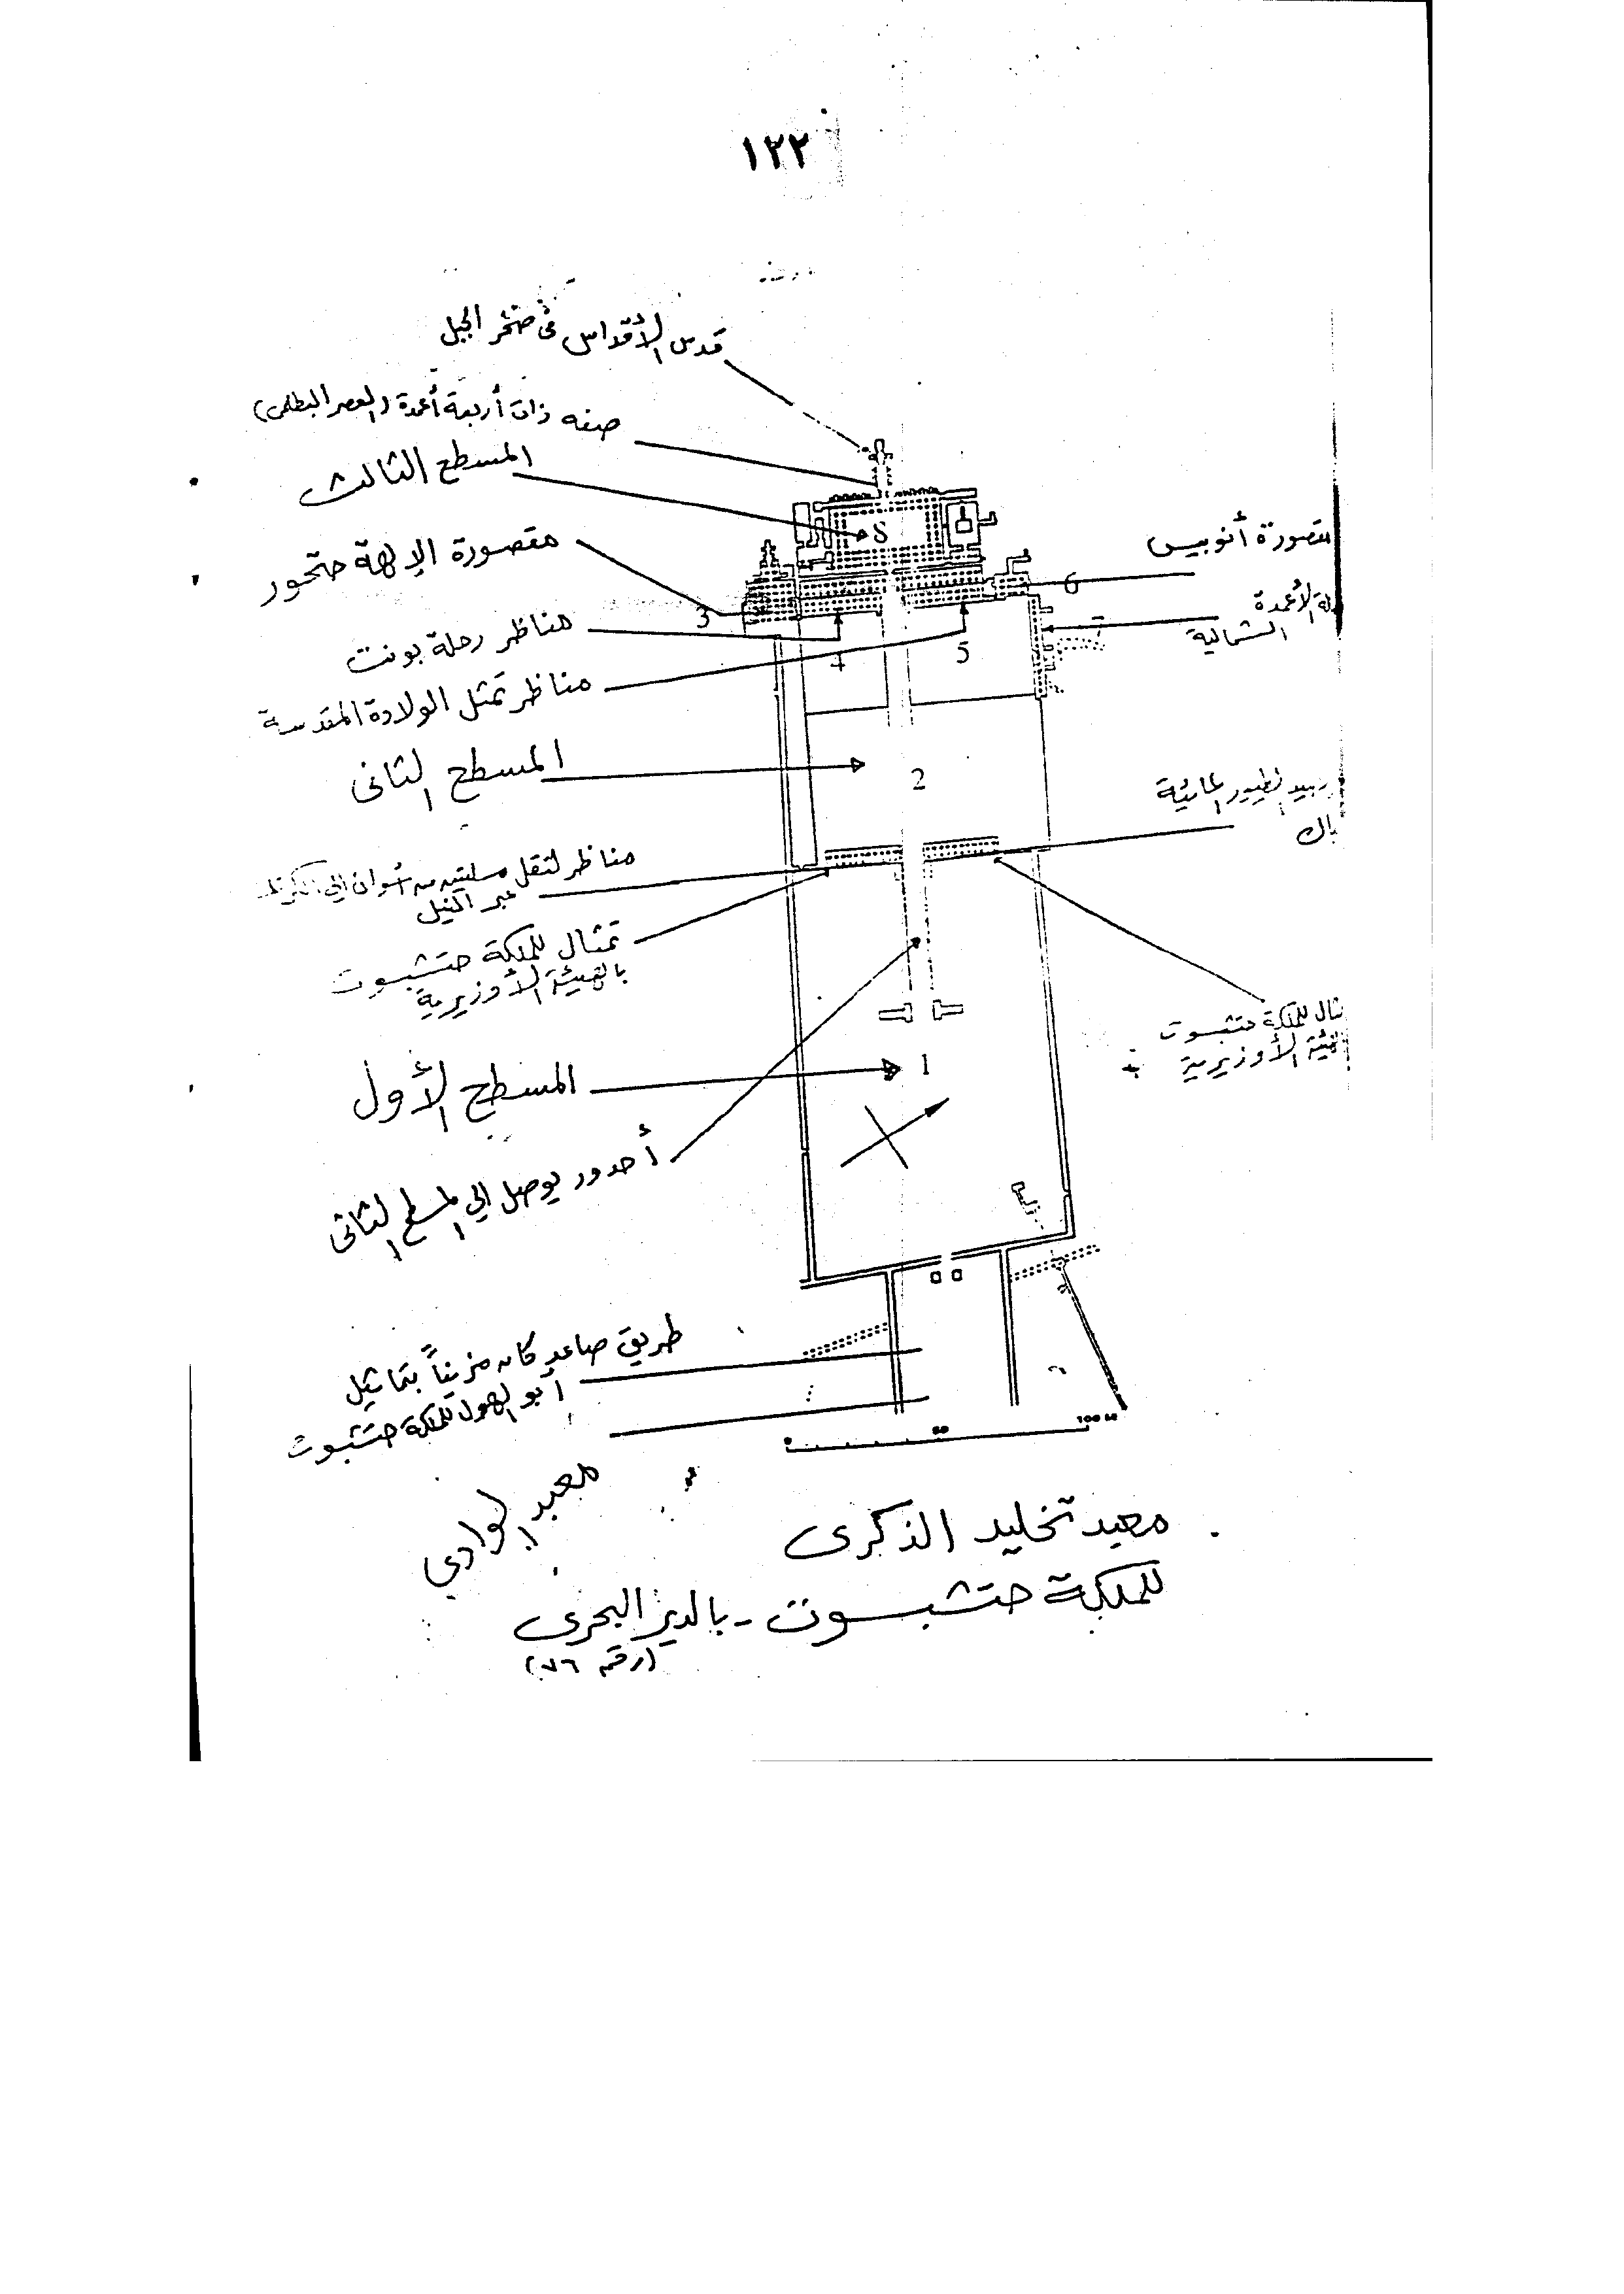 ١٢٢
قدس الأقداس فى صخر الجبل
صفه ذات أربعة أعمدة (العصر البطلمى)
المسطح الثالث
8
مقصورة أنوبيس
مقصورة الإلهة حتحور
6
لة الأعمدة
الشمالية
3
مناظر رحلة بونت
4
5
مناظر تمثل الولادة المقدسة
المسطح الثانى
2
الطيور المائية
مناظر لنقل مسلتين من أسوان إلى الكرنك
عبر النيل
تمثال للملكة حتشبسوت
بالهيئة الأوزيرية
ثال للملكة حتشبسوت
الأوزيرية
المسطح الأول
1
أحدور يوصل إلى المسطح الثانى
طريق صاعد كان مزيناً بتماثيل
أبو الهول للملكة حتشبسوت
0 50 100 M
معبد الوادي
معبد تخليد الذكرى
للملكة حتشبسوت - بالدير البحرى
(رقم ٧٦)